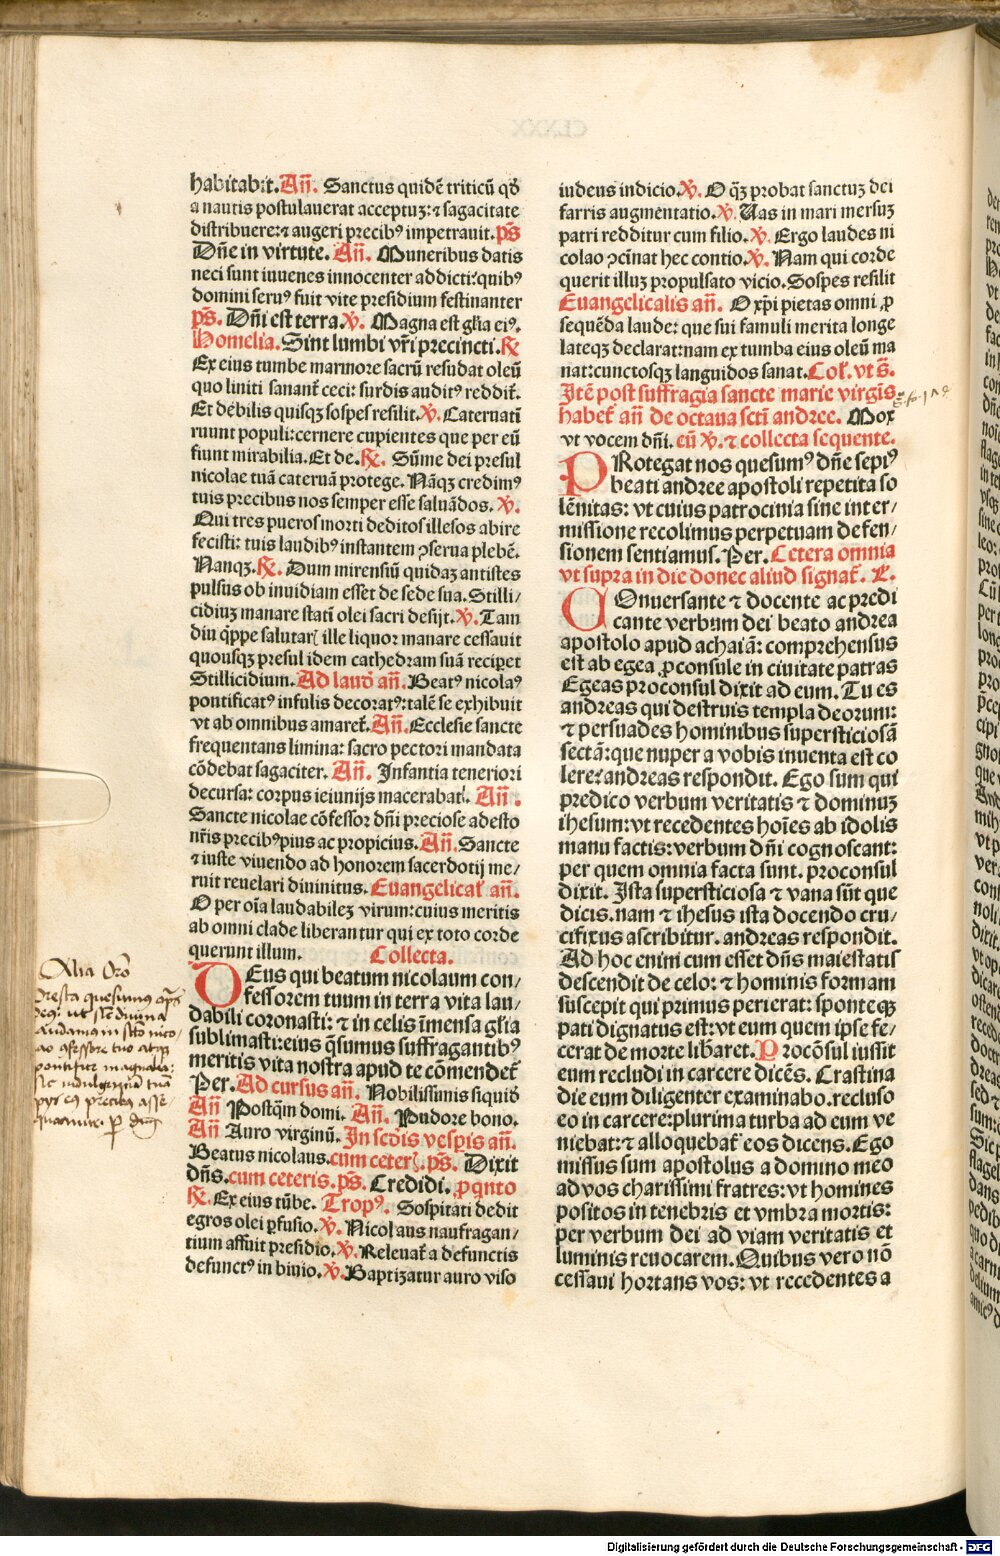 habitabit. Añ. Sanctus quidē triticū qđ
a nautis postulauerat acceptuꝫ: ⁊ sagacitate
distribuere: ⁊ augeri precibꝰ impetrauit. p̄s
Dn̄e in virtute. Añ. Muneribus datis
neci sunt iuuenes innocenter addicti: quibꝰ
domini seruꝰ fuit vite presidium festinanter
p̄s. Dn̄i est terra. ℣. Magna est gl̄ia eiꝰ.
Homelia. Sint lumbi vr̄i precincti. ℟
Ex eius tumbe marmore sacrū resudat oleū
quo liniti sanant̄ ceci: surdis auditꝰ reddit̄.
Et debilis quisqꝫ sospes resilit. ℣. Cateruati
ruunt populi: cernere cupientes que per eū
fiunt mirabilia. Et de. ℟. Sūme dei presul
nicolae tuā cateruā protege. Nāqꝫ credimꝰ
tuis precibus nos semper esse saluādos. ℣.
Qui tres pueros morti deditos illesos abire
fecisti: tuis laudibꝰ instantem ꝯserua plebē.
Nanqꝫ. ℟. Dum mirensiū quidaꝫ antistes
pulsus ob inuidiam esset de sede sua. Stilli/
cidiuꝫ manare statī olei sacri desijt. ℣. Tam
diu q̄ppe salutarꝭ ille liquor manare cessauit
quousqꝫ presul idem cathedram suā reciperet
Stillicidium. Ad laud̄ añ. Beatꝰ nicolaꝰ
pontificatꝰ infulis decoratꝰ: talē se exhibuit
vt ab omnibus amaret̄. Añ. Ecclesie sancte
frequentans limina: sacro pectori mandata
cōdebat sagaciter. Añ. Infantia teneriori
decursa: corpus ieiunijs macerabat. Añ.
Sancte nicolae cōfessor dn̄i preciose adesto
nr̄is precibꝰ pius ac propicius. Añ. Sancte
⁊ iuste viuendo ad honorem sacerdotij me/
ruit reuelari diuinitus. Euangelical̄ añ.
O per oīa laudabileꝫ virum: cuius meritis
ab omni clade liberantur qui ex toto corde
querunt illum. Collecta.
DEus qui beatum nicolaum con/
fessorem tuum in terra vita lau/
dabili coronasti: ⁊ in celis īmensa gl̄ia
sublimasti: eius q̄sumus suffragantibꝰ
meritis vita nostra apud te cōmendet̄
Per. Ad cursus añ. Nobilissimis siquid̄
Añ Postq̄m domi. Añ. Pudore bono.
Añ Auro virginū. In scd̄is vesp̄is añ.
Beatus nicolaus. cum ceterꝭ. p̄s. Dixit
dn̄s. cum ceteris. p̄s. Credidi. ꝓ qn̄to
℟. Ex eius tūbe. Tropꝰ. Sospitati dedit
egros olei ꝑfusio. ℣. Nicolaus naufragan/
tium affuit presidio. ℣. Releuat̄ a defunctis
defunctꝰ in biuio. ℣. Baptizatur auro viso
Alia Oro
iudeus indicio. ℣. O q̄ꝫ probat sanctuꝫ dei
farris augmentatio. ℣. Uas in mari mersuꝫ
patri redditur cum filio. ℣. Ergo laudes ni
colao ꝯcinat hec contio. ℣. Nam qui corde
querit illuꝫ propulsato vicio. Sospes resilit
Euangelicalis añ. O xp̄i pietas omni ꝓ
sequēda laude: que sui famuli merita longe
lateqꝫ declarat: nam ex tumba eius oleū ma
nat: cunctosqꝫ languidos sanat. Col̄. vt s̄.
Itē post suffragia sancte marie virgīs
habet̄ añ de octaua sct̄i andree. Mox
vt vocem dn̄i. cū ℣. ⁊ collecta sequente.
PRotegat nos quesumꝰ dn̄e sepiꝰ
beati andree apostoli repetita so
lēnitas: vt cuius patrocinia sine inter/
missione recolimus perpetuam defen/
sionem sentiamus. Per. Cetera omnia
vt supra in die donec aliud signat̄. L̄.
COnuersante ⁊ docente ac predi
cante verbum dei beato andrea
apostolo apud achaiā: comprehensus
est ab egea ꝓconsule in ciuitate patras
Egeas proconsul dixit ad eum. Tu es
andreas qui destruis templa deorum:
⁊ persuades hominibus supersticiosā
sectā: que nuper a vobis inuenta est co
lere? andreas respondit. Ego sum qui
predico verbum veritatis ⁊ dominuꝫ
ihesum: vt recedentes hoīes ab idolis
manu factis: verbum dn̄i cognoscant:
per quem omnia facta sunt. proconsul
dixit. Ista supersticiosa ⁊ vana sūt que
dicis. nam ⁊ ihesus ista docendo cru/
cifixus ascribitur. andreas respondit.
Ad hoc enim cum esset dn̄s maiestatis
descendit de celo: ⁊ hominis formam
suscepit qui primus perierat: sponteqꝫ
pati dignatus est: vt eum quem ipse fe/
cerat de morte libaret. Procōsul iussit
eum recludi in carcere dicēs. Crastina
die eum diligenter examinabo. recluso
eo in carcere: plurima turba ad eum ve
niebat: ⁊ alloquebat̄ eos dicens. Ego
missus sum apostolus a domino meo
ad vos charissimi fratres: vt homines
positos in tenebris et vmbra mortis:
per verbum dei ad viam veritatis et
luminis reuocarem. Quibus vero nō
cessaui hortans vos: vt recedentes a
Digitalisierung gefördert durch die Deutsche Forschungsgemeinschaft - DFG